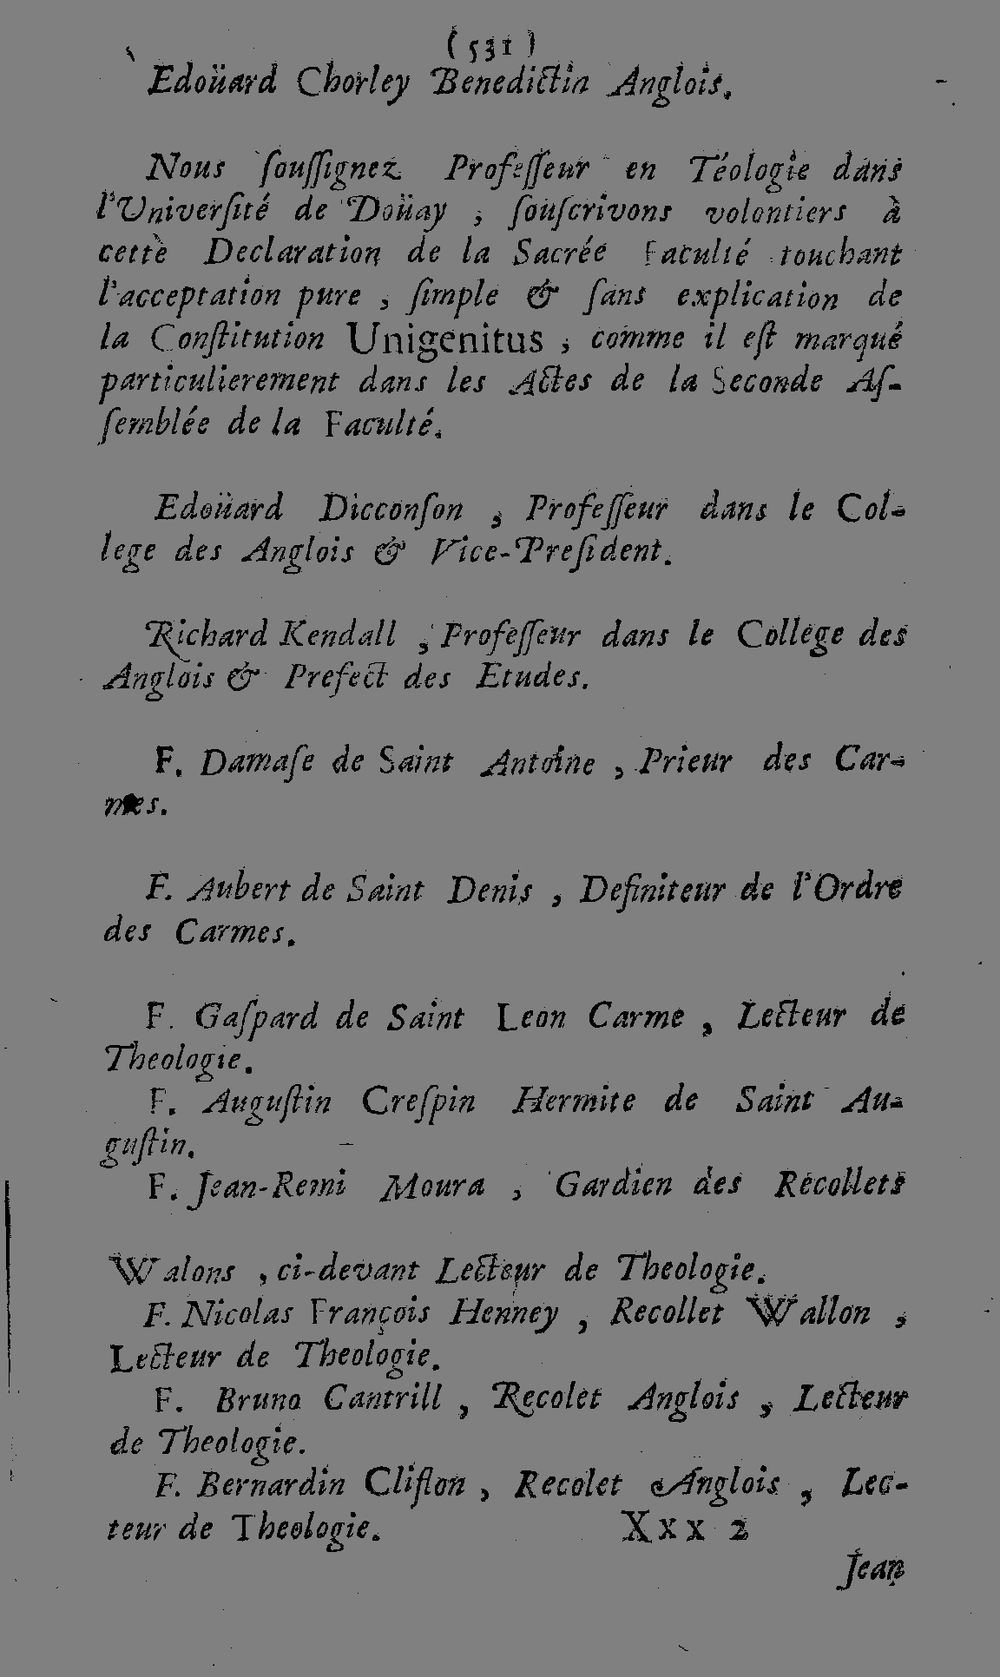 ( 531 )
Edoüard Chorley Benedictin Anglois.
Nous ſouſſignez Profeſſeur en Téologie dans
l'Univerſité de Doüay , ſouſcrivons volontiers à
cette Declaration de la Sacrée Faculté touchant
l'acceptation pure , ſimple & ſans explication de
la Conſtitution Unigenitus , comme il eſt marqué
particulierement dans les Actes de la Seconde Aſ-
ſemblée de la Faculté.
Edoüard Dicconſon , Profeſſeur dans le Col-
lege des Anglois & Vice-Preſident.
Richard Kendall , Profeſſeur dans le College des
Anglois & Prefect des Etudes.
F. Damaſe de Saint Antoine , Prieur des Car-
mes.
F. Aubert de Saint Denis , Definiteur de l'Ordre
des Carmes.
F. Gaſpard de Saint Leon Carme , Lecteur de
Theologie.
F. Auguſtin Creſpin Hermite de Saint Au-
guſtin.
F. Jean-Remi Moura , Gardien des Recollets
Walons , ci-devant Lecteur de Theologie.
F. Nicolas François Henney , Recollet Wallon ,
Lecteur de Theologie.
F. Bruno Cantrill , Recolet Anglois , Lecteur
de Theologie.
F. Bernardin Clifton , Recolet Anglois , Lec-
teur de Theologie. Xxx 2
Jean